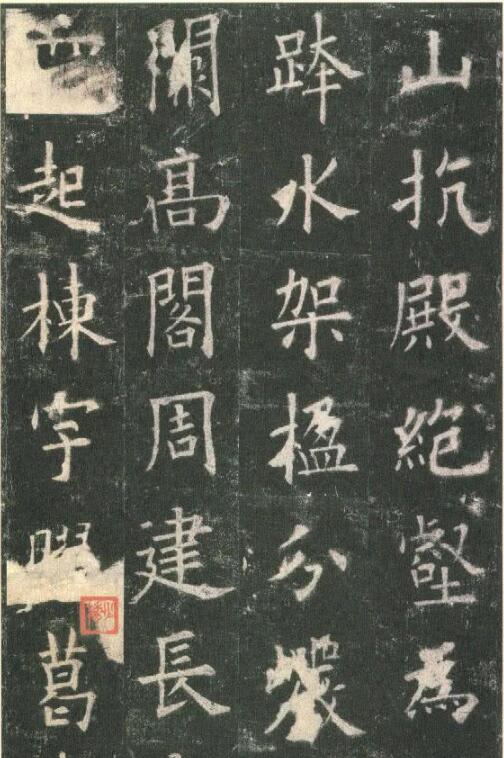 山抗殿絕壑為
跨水架楹分巖
闕高閣周建長
四起棟宇膠葛